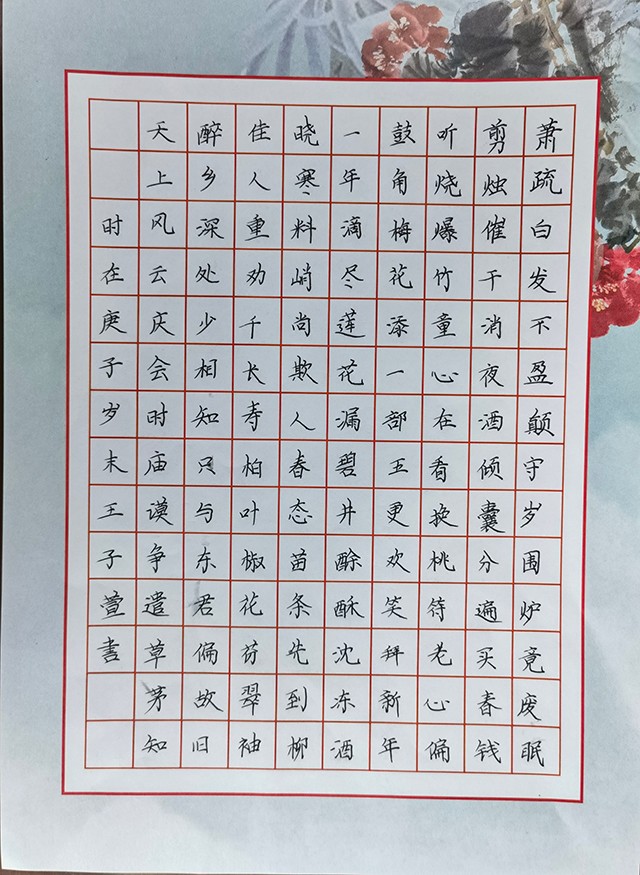 萧疏白发不盈颠守岁围炉竟废眠
剪烛催干消夜酒倾囊分遍买春钱
听烧爆竹童心在看换桃符老心偏
鼓角梅花添一部五更欢笑拜新年
一年滴尽莲花漏碧井酴酥沈冻酒
晓寒料峭尚欺人春态苗条先到柳
佳人重劝千长寿柏叶椒花芬翠袖
醉乡深处少相知只与东君偏故旧
天上风云庆会时庙谟争遣草茅知
时在庚子岁末王子萱书